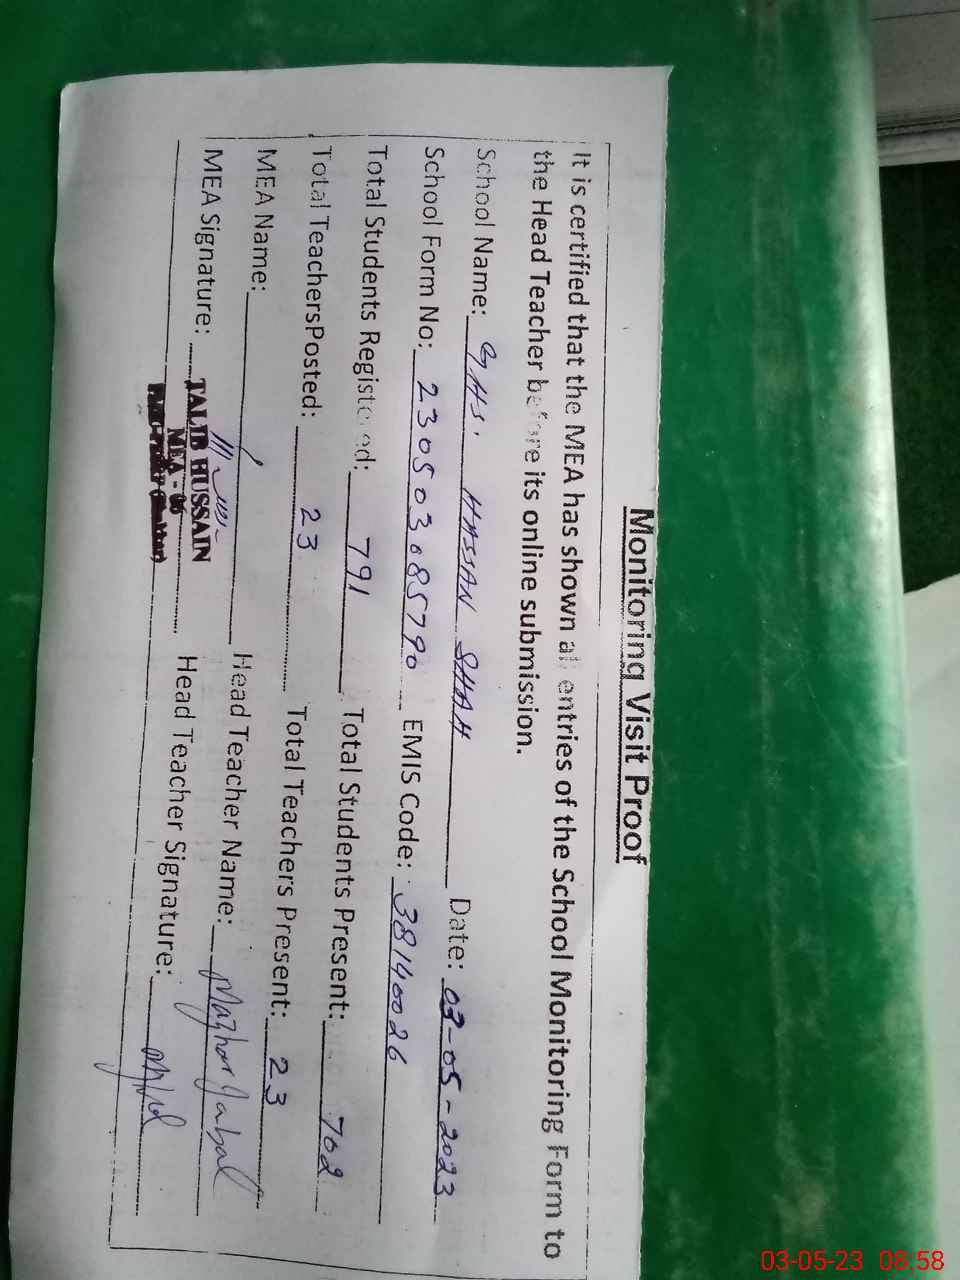 Monitoring Visit Proof
It is certified that the MEA has shown all entries of the School Monitoring Form to
the Head Teacher before its online submission.
School Name: GHS, HASSAN SHAH Date: 03-05-2023
School Form No: 230503085790 EMIS Code: 38140026
Total Students Registered: 791 Total Students Present: 702
Total TeachersPosted: 23 Total Teachers Present: 23
MEA Name: Head Teacher Name: Mazhar Iqbal
MEA Signature: Head Teacher Signature:
TALIB HUSSAIN
MEA - 06
03-05-23 08:58